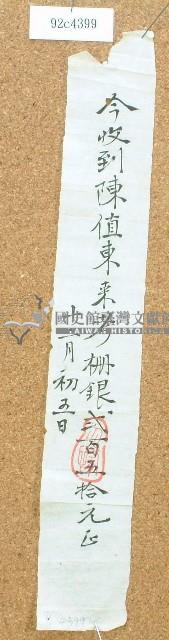 92c4399
今收到陳值東来
柵銀貳百五拾元正
十二月初五日
國史館臺灣文獻館
TAIWAN HISTORICA